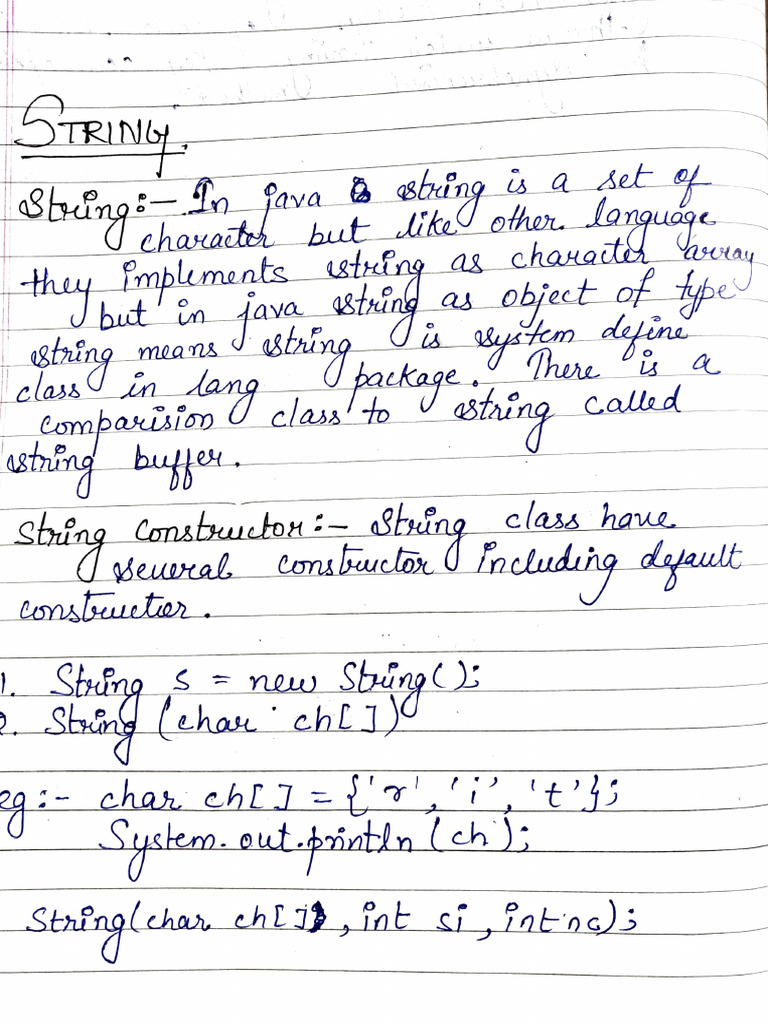 STRING.
String:- In java string is a set of
character but like other language
they implements string as character array
but in java string as object of type
string means string is system define
class in lang package. There is a
comparision class to string called
string buffer.
String Constructor:- String class have
several constructor including default
constructor.
1. String s = new String();
2. String (char ch[])
eg:- char ch[] = {'r', 'i', 't'};
System.out.println(ch);
String(char ch[], int si, int nc);